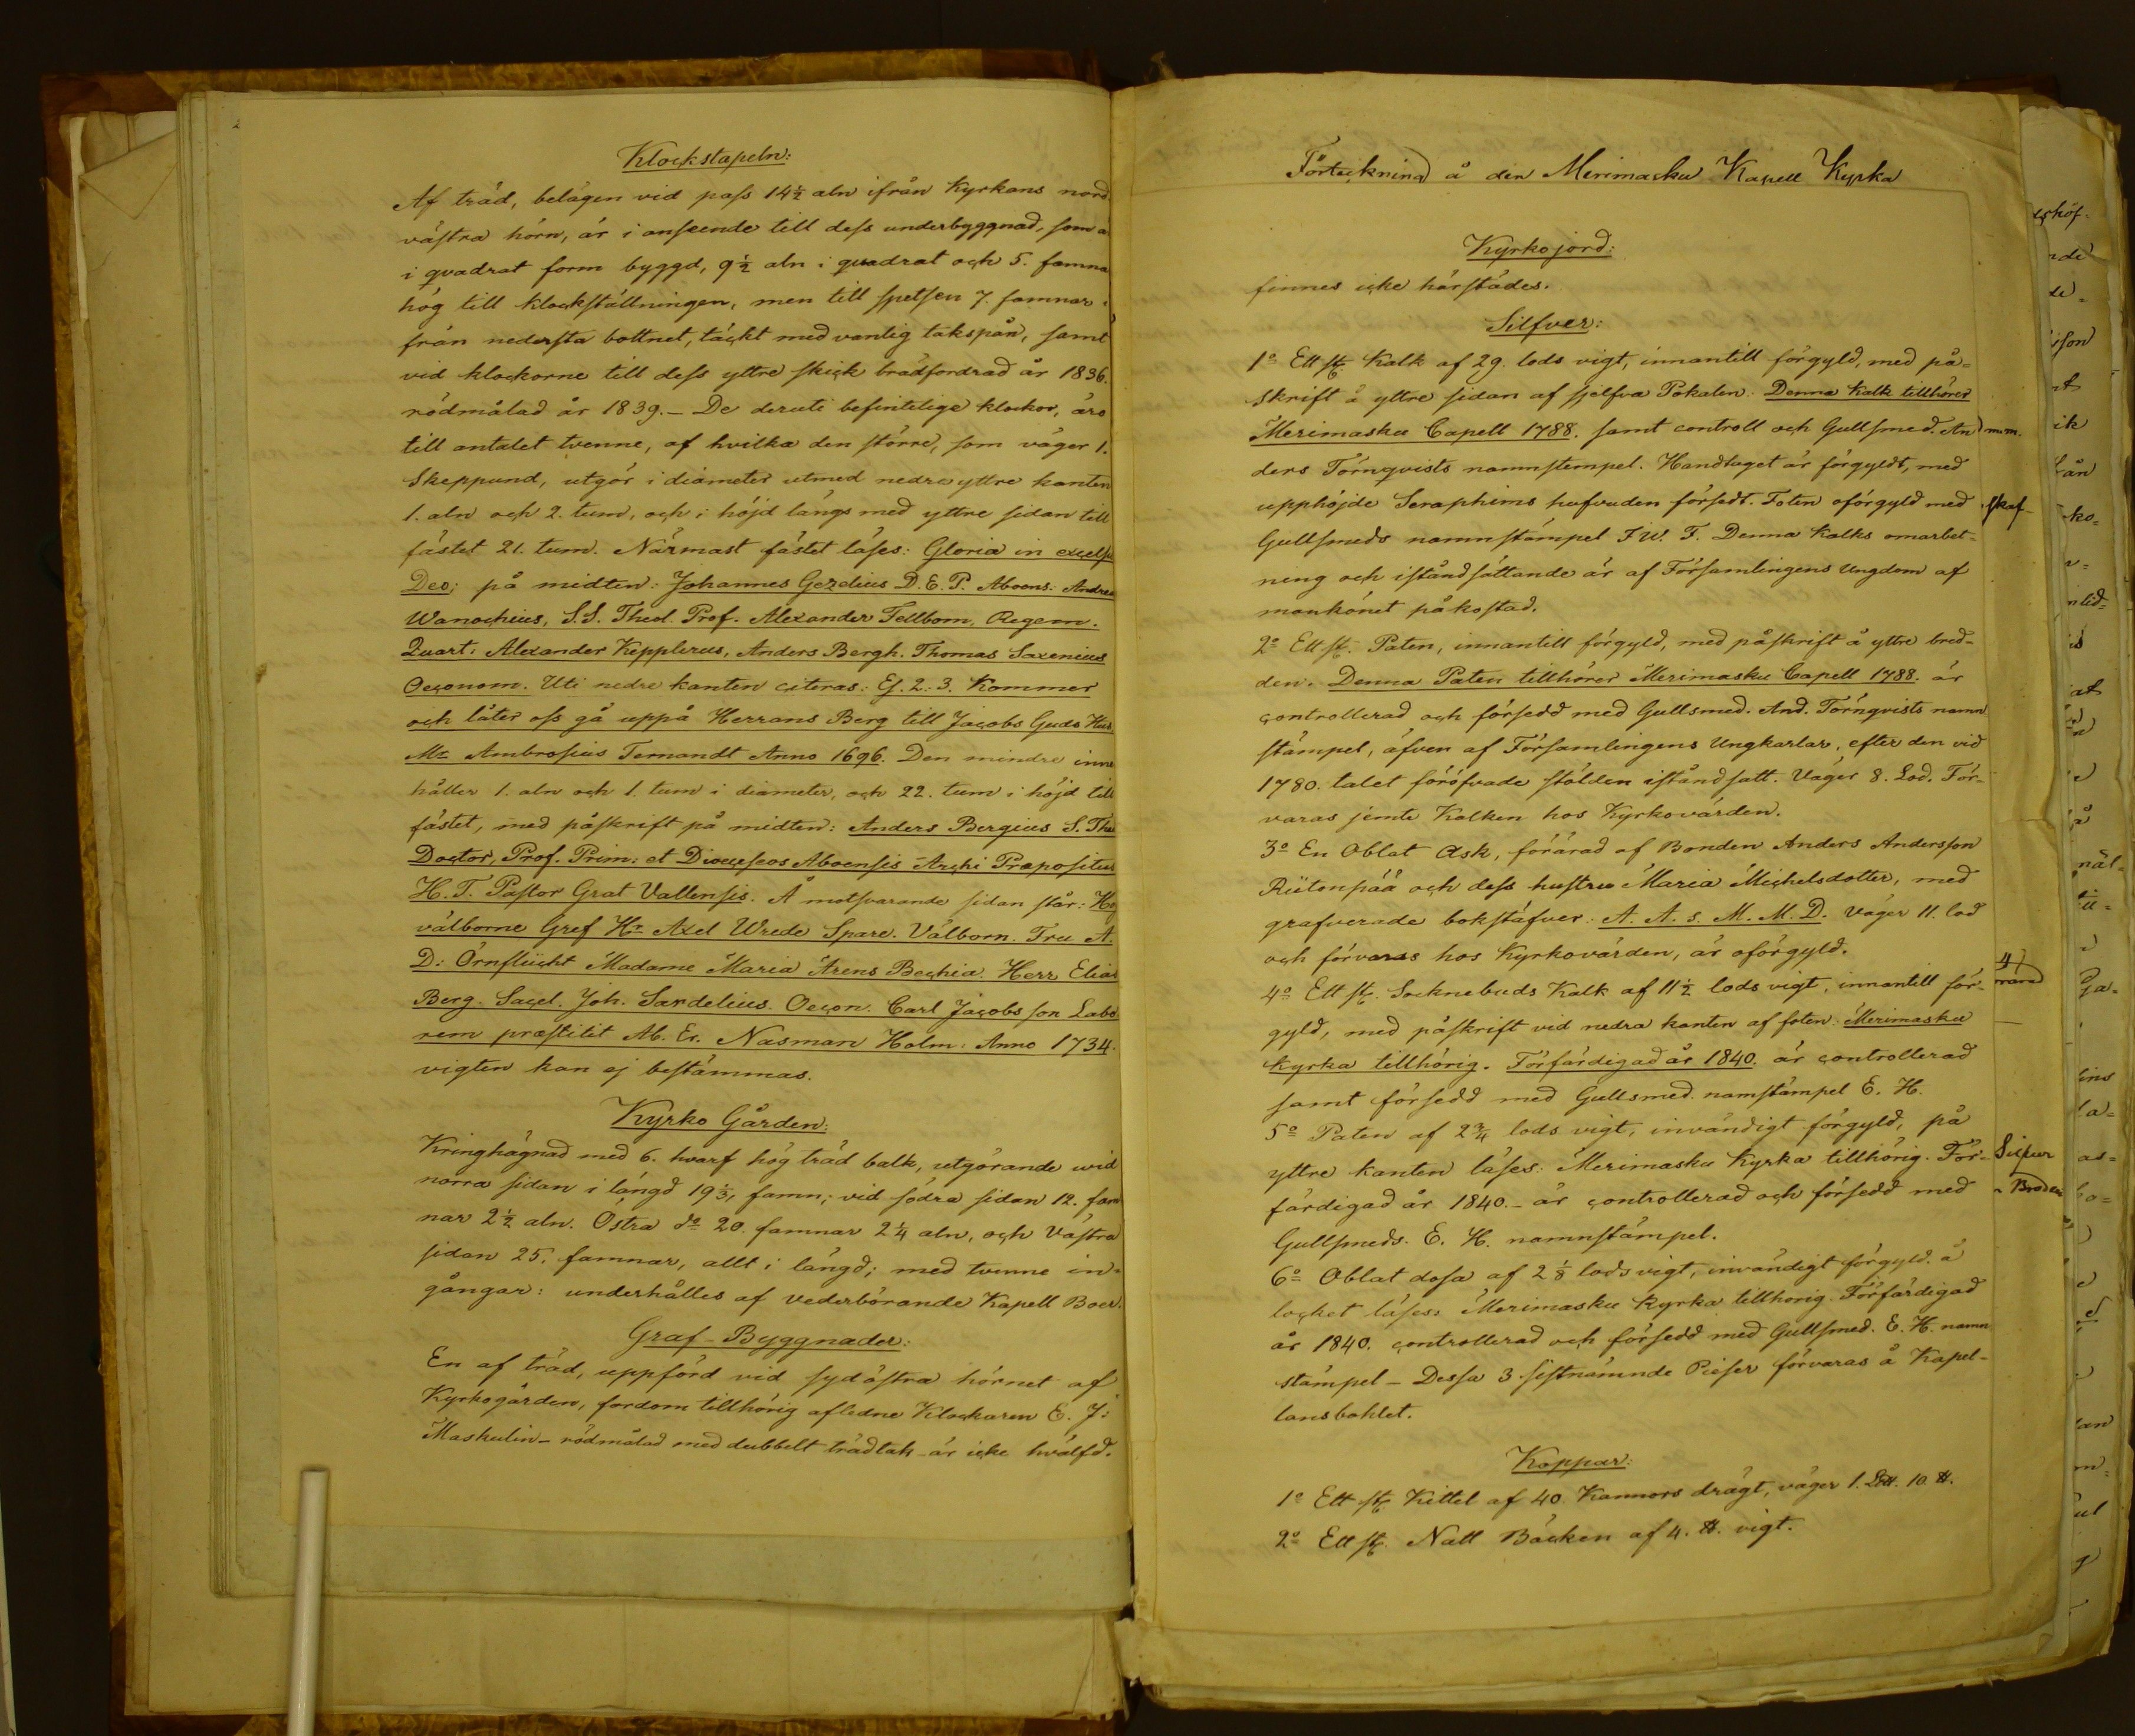 Klockstapeln:
Af träd, belägen vid pass 14½ aln ifrån Kyrkans nord
västra hörn, är i anseende till dess underbyggnad, som ä
i qvadrat form byggd, 9½ aln i quadrat och 5. famna
hög till klockställningen, men till spetsen 7. famnar
från nedersta bottnet, täckt med vanlig takspån, samt
vid klockorne till dess yttre skick brädfordrad år 1836.
rödmålad år 1839. – De deruti befintelige klockor, äro
till antalet tvenne, af hvilka den större, som väger 1.
Skeppund, utgör i diameter utmed nedre yttre kanten
1. aln och 2. tum, och i höjd längs med yttre sidan till
fästet 21. tum. Närmast fästet läses: Gloria in excels
Deo; på midten: Johannes Gezelius D. E. P. Aboens: Andrea
Wanochius, S. S. Theol. Prof. Alexander Fellbom, Regem.
Quart: Alexander Kepplerus, Anders Bergh. Thomas Saxenius
Oeconom. Uti nedre kanten citeras: Es. 2: 3. Kommer
och låter oss gå uppå Herrans Berg till Jacobs Guds Hus
Mr Ambrosius Ternandt Anno 1696. Den mindre inne
håller 1. aln och 1. tum i diameter, och 22. tum i höjd till
fästet, med påskrift på midten: Anders Bergius S. The
Doctor, Prof. Prim: et Dioeceseos Aboensis Archi Præpositus
H. T. Pastor Grat Vallensis. Å motsvarande sidan står: Hög
välborne Gref Hr Axel Wrede Spare. Välborn. Fru A.
D: Örnflücht Madame Maria Arens Bechia. Herr Elias
Berg. Sacel. Joh. Sardelius. Oecon. Carl Jacobs son Labo
rem præstitit Ab. Er. Nasman Holm: Anno 1734.
vigten kan ej bestämmas.
Kyrko Gården:
Kringhägnad med 6. hvarf hög träd balk, utgörande wid
norra sidan i längd 19⅓, famn; vid södra sidan 12. fam
nar 2½ aln. Östra do 20. famnar 2¼ aln, och Västra
sidan 25. famnar, allt i längd; med tvenne in=
gångar: underhålles af vederbörande Kapell Boer.
Graf-Byggnader:
En af träd, uppförd vid sydöstra hörnet af
Kyrkogården, fordom tillhörig afledne Klockaren E. J:
Maskulin – rödmålad med dubbelt trädtak är icke hvälfd.
Förteckning å den Merimasku Kapell Kyrka
Kyrkojord:
finnes icke härstädes.
Silfver:
1o Ett st. Kalk af 29. lods vigt, innantill förgyld, med på=
skrift å yttre sidan af sjelfva Pokalen. Denna Kalk tillhörer
Merimasku Capell 1788. samt controll och Gullsmed. An
ders Törnqvists namnstempel. Handtaget är förgyldt, med
upphöjde Seraphims hufvuden försedt. Foten oförgyld med
Gullsmeds namnstämpel F. W. F. Denna Kalks omarbet-
ning och iståndsättande är af Församlingens Ungdom af
mankönet påkostad.
2o Ett st. Paten, innantill förgyld, med påskrift å yttre bred-
den. Denna Paten tillhörer Merimasku Capell 1788. är
controllerad och försedd med Gullsmed. And. Törnqvists namn
stämpel, äfven af Församlingens Ungkarlar, efter den vid
1780. talet föröfvade stölden iståndsatt. Väger 8. Lod. För-
varas jemte Kalken hos Kyrkovärden.
3o En Oblat Ask, förärad af Bonden Anders Andersson
Riitonpää och dess hustru Maria Michelsdotter, med
grafverade bokstäfver: A. A. s. M. M. D. Väger 11. lod
och förvaras hos Kyrkovärden, är oförgyld.
4o Ett st. Socknebuds Kalk af 11½ lods vigt, innantill för-
gyld, med påskrift vid nedra kanten af foten: Merimasku
kyrka tillhörig. Förfärdigad år 1840. är controllerad
samt försedd med Gullsmed. namstämpel E. H.
5o Paten af 2¾ lods vigt, invändigt förgyld, på
yttre kanten läses: Merimasku Kyrka tillhörig. För-
färdigad år 1840. – är controllerad och försedd med
Gullsmeds. E. H. namnstämpel.
6o Oblat dosa af 2⅛ lods vigt, invändigt förgyld. å
locket läses: Merimasku Kyrka tillhörig. Förfärdigad
år 1840. controllerad och försedd med Gullsmed. E. H. namn
stämpel – Dessa 3 sistnämnde Pieser förvaras å Kapel-
lansbohlet.
Koppar:
1o Ett st. Kittel af 40. Kannors drägt, väger 1. L℔. 10 ℔.
2o Ett st. Natt Bäcken af 4. ℔. vigt.